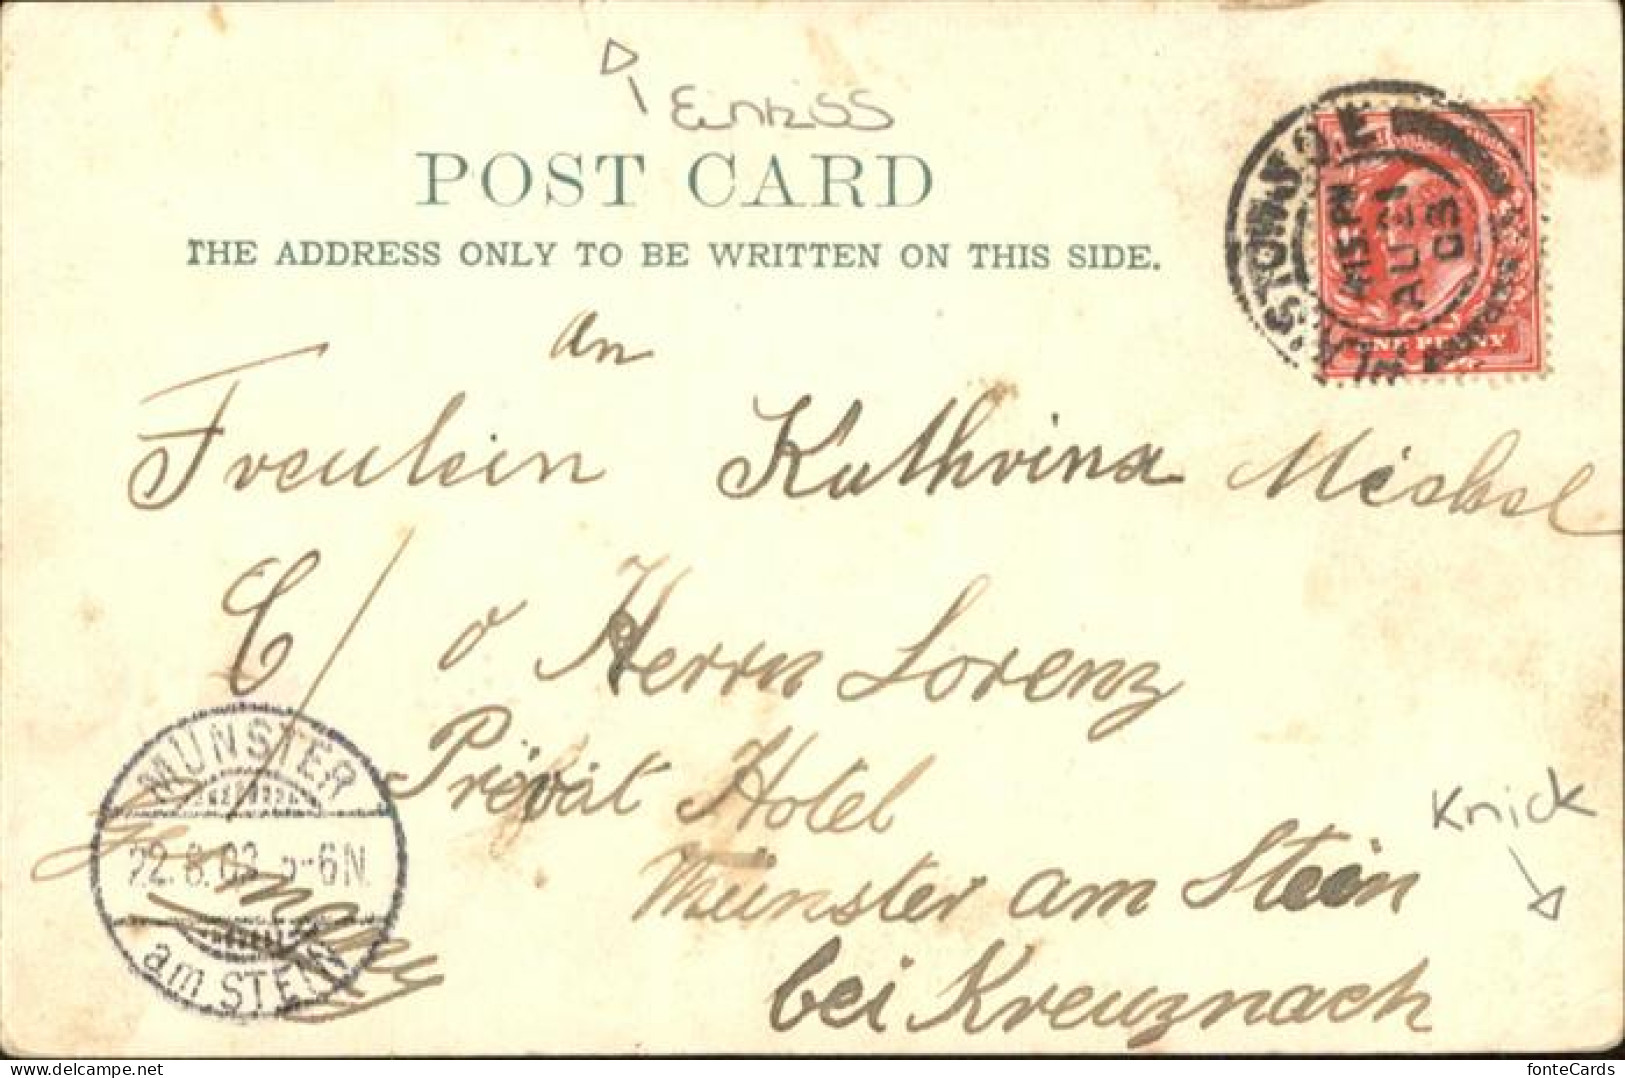 Einriss
POST CARD
THE ADDRESS ONLY TO BE WRITTEN ON THIS SIDE.
4.15 PM
AU 21
03
ONE PENNY
An
Freulein Kathrina Michel
C/o Herrn Lorenz
Privat Hotel
Münster am Stein
bei Kreuznach
Germany
MÜNSTER
22.8.03 5-6N.
am STEIN
Knick
fonteCards